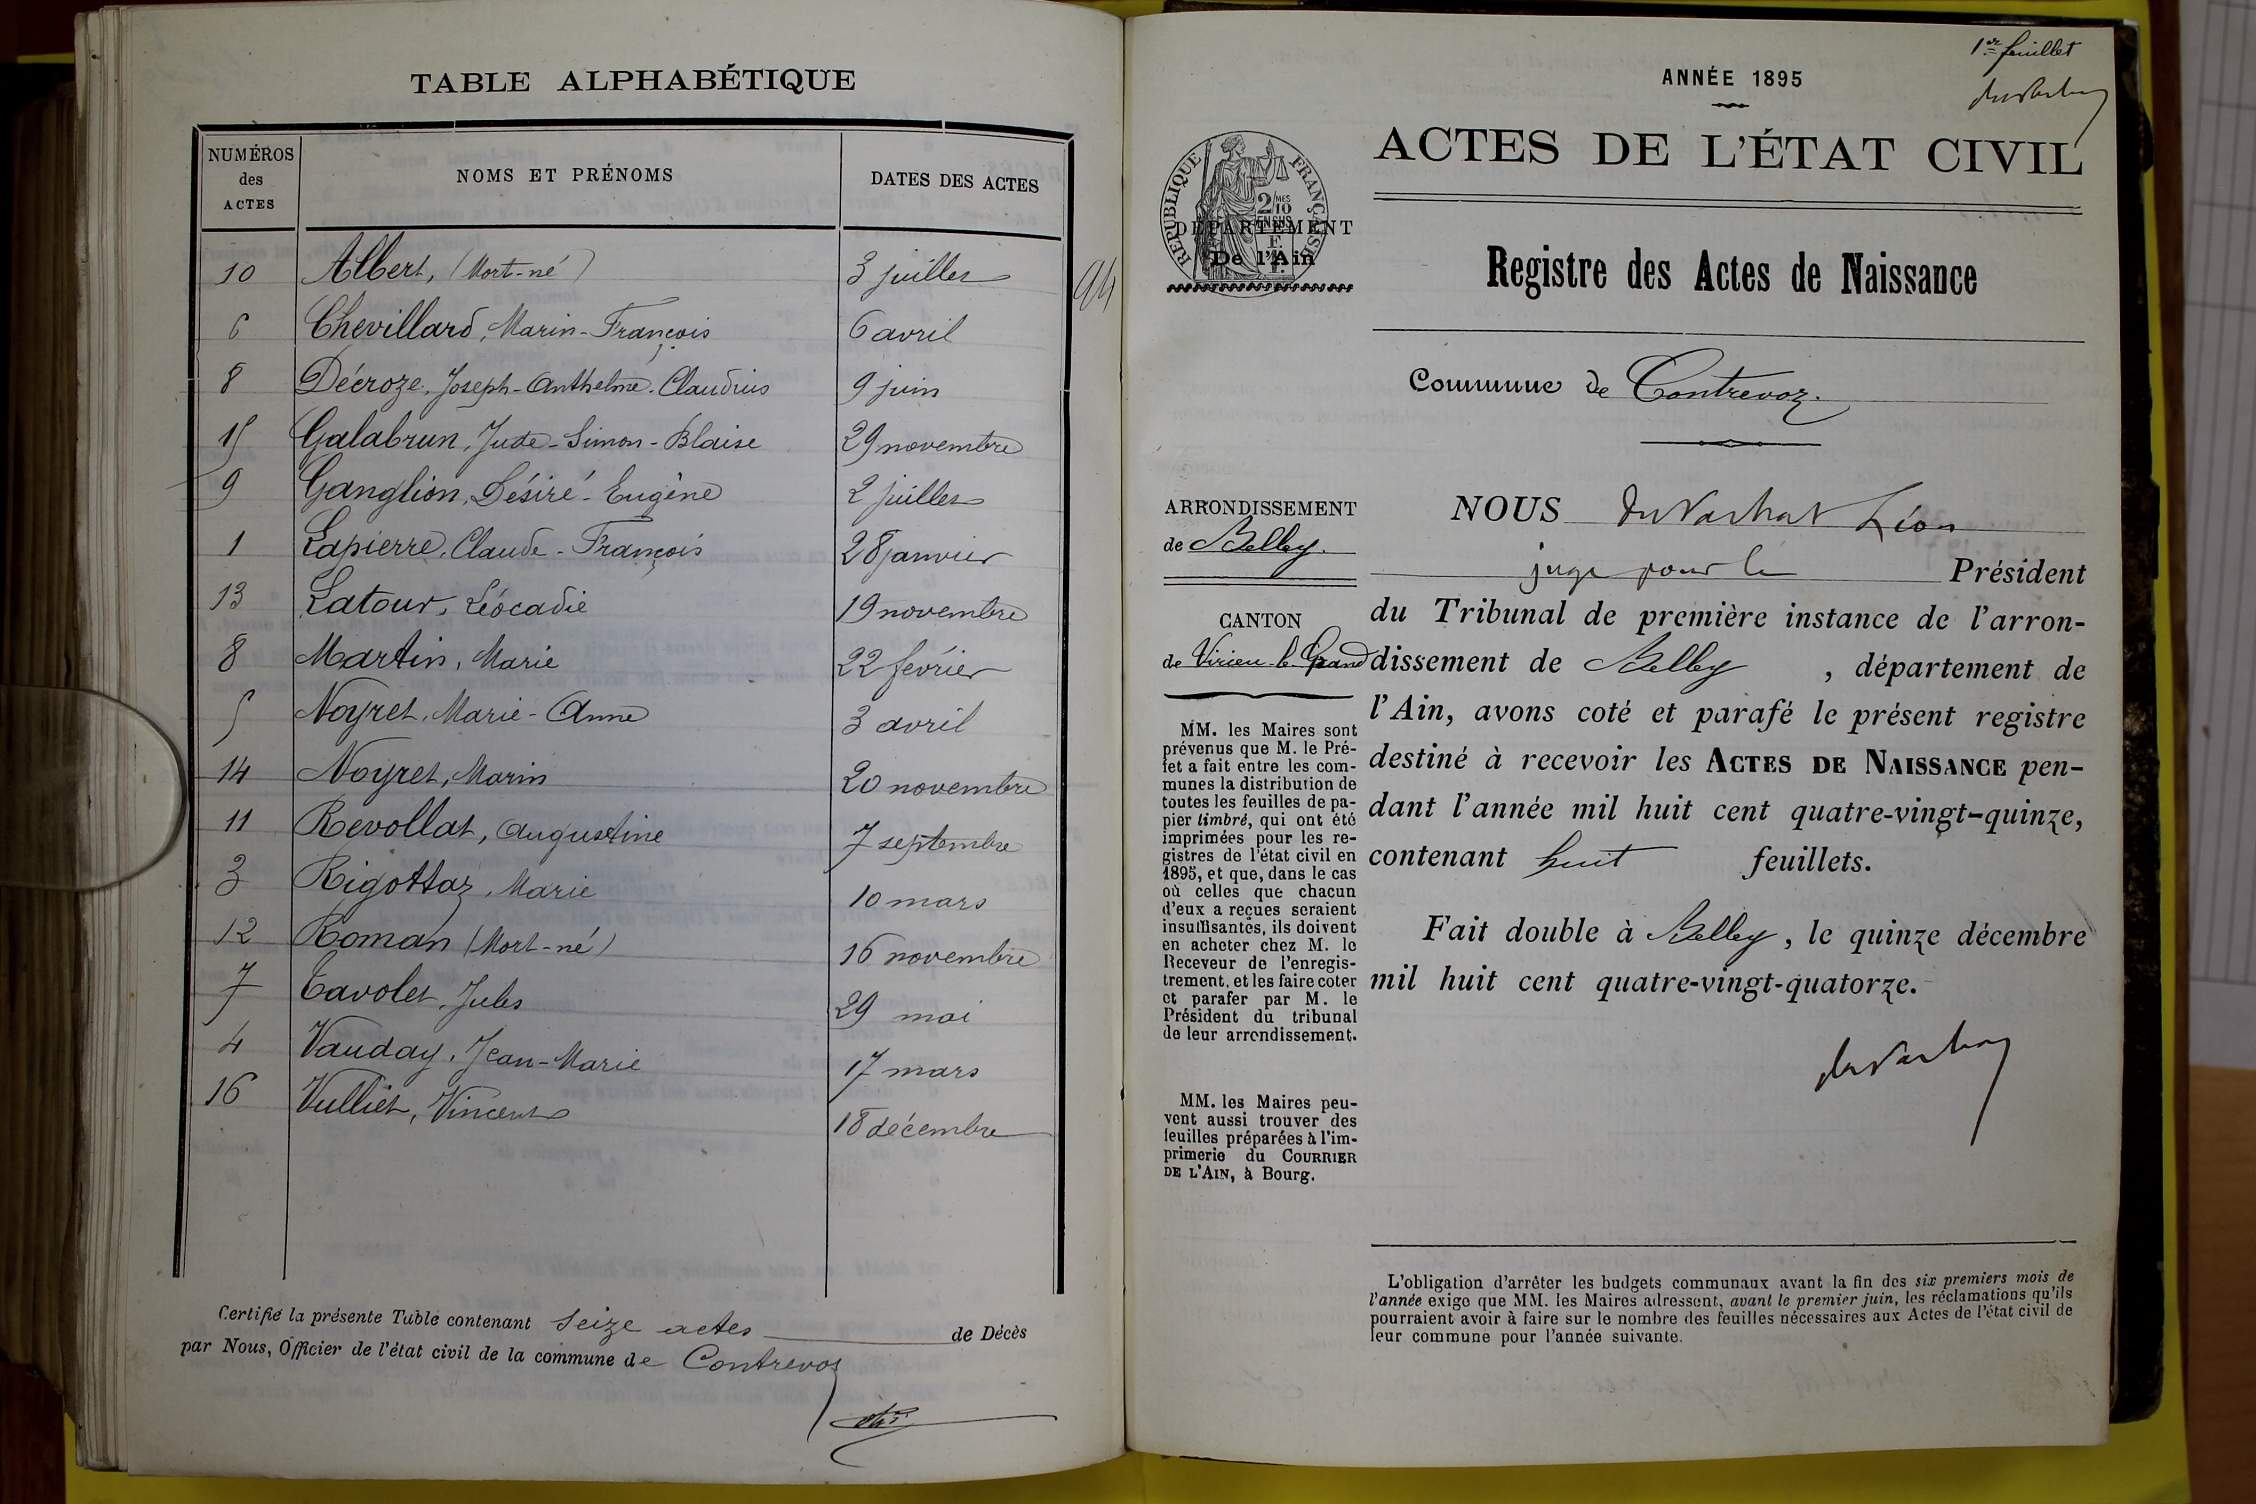 TABLE ALPHABÉTIQUE
NUMÉROS des ACTES NOMS ET PRÉNOMS DATES DES ACTES
10 Albert, (Mort-né) 3 juillet
6 Chevillard, Marin-François 6 avril
8 Décroze, Joseph-Anthelme-Claudius 9 juin
15 Galabrun, Jude-Simon-Blaise 29 novembre
9 Ganglion, Désiré-Eugène 2 juillet
1 Lapierre, Claude-François 28 janvier
13 Latour, Léocadie 19 novembre
8 Martin, Marie 22 février
5 Noyret, Marie-Anne 3 avril
14 Noyret, Marin 20 novembre
11 Revollat, Augustine 7 septembre
3 Rigottaz, Marie 10 mars
12 Roman (Mort-né) 16 novembre
7 Tavolet, Jules 29 mai
4 Vauday, Jean-Marie 17 mars
16 Vulliet, Vincent 18 décembre
Certifié la présente Table contenant seize actes de Décès
par Nous, Officier de l'état civil de la commune de Contrevoz
94
1er feuillet
ANNÉE 1895
ACTES DE L'ÉTAT CIVIL
RÉPUBLIQUE FRANÇAISE
2/10 MES
EN SUS
DÉPARTEMENT
De l'Ain
Registre des Actes de Naissance
Commune de Contrevoz.
ARRONDISSEMENT
de Belley.
CANTON
de Virieu-le-Grand
MM. les Maires sont
prévenus que M. le Pré-
fet a fait entre les com-
munes la distribution de
toutes les feuilles de pa-
pier timbré, qui ont été
imprimées pour les re-
gistres de l'état civil en
1895, et que, dans le cas
où celles que chacun
d'eux a reçues seraient
insuffisantes, ils doivent
en acheter chez M. le
Receveur de l'enregis-
trement, et les faire coter
et parafer par M. le
Président du tribunal
de leur arrondissement.
MM. les Maires peu-
vent aussi trouver des
feuilles préparées à l'im-
primerie du COURRIER
DE L'AIN, à Bourg.
NOUS Léon
juge pour le Président
du Tribunal de première instance de l'arron-
dissement de Belley, département de
l'Ain, avons coté et parafé le présent registre
destiné à recevoir les ACTES DE NAISSANCE pen-
dant l'année mil huit cent quatre-vingt-quinze,
contenant huit feuillets.
Fait double à Belley, le quinze décembre
mil huit cent quatre-vingt-quatorze.
L'obligation d'arrêter les budgets communaux avant la fin des six premiers mois de
l'année exige que MM. les Maires adressent, avant le premier juin, les réclamations qu'ils
pourraient avoir à faire sur le nombre des feuilles nécessaires aux Actes de l'état civil de
leur commune pour l'année suivante.